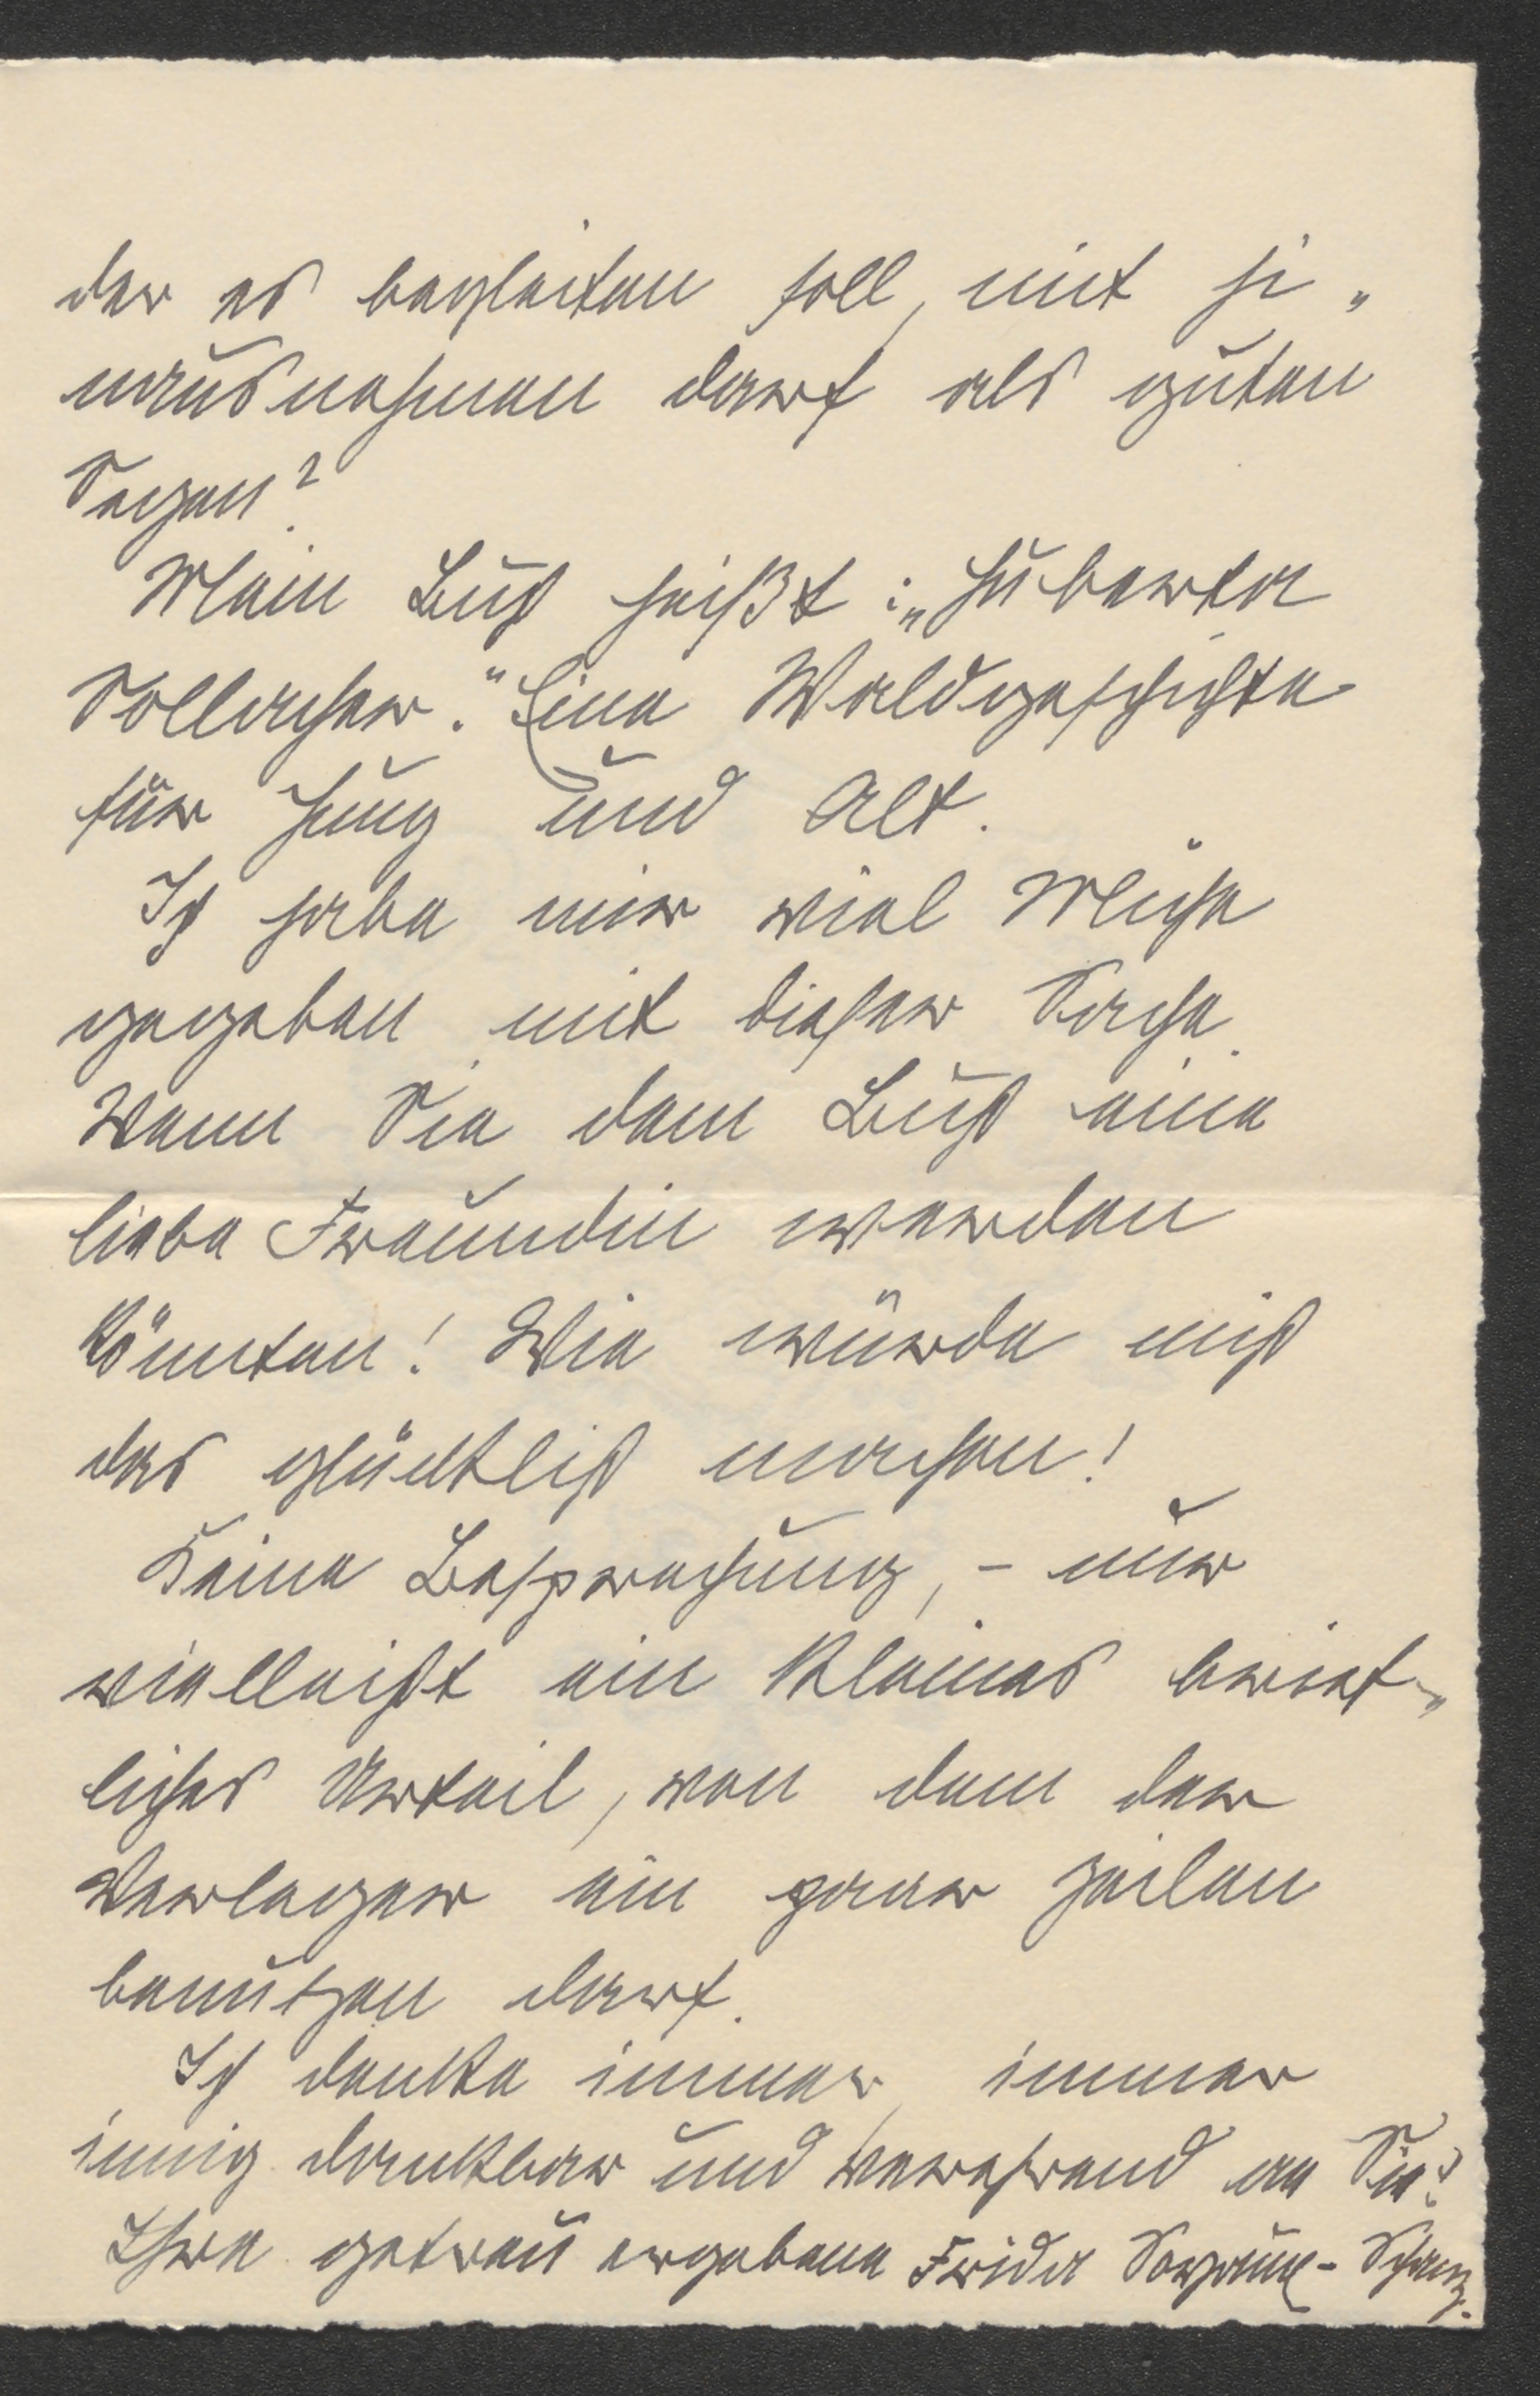 der es begleiten soll, mit hi„
nausnehmen darf als guten
Segen?
Mein Buch heißt: „Huberta
Sollacher.“ Eine Waldgeschichte
für Jung und Alt.
Ich habe mir viel Mühe
gegeben mit dieser Sache.
Wenn Sie dem Buch eine
liebe Freundin werden
könnten! Wie würde mich
das glücklich machen!
Keine Besprechung, – nur
vielleicht ein kleines brief„
liches Urteil, von dem der
Verleger ein paar Zeilen
benutzen darf.
Ich denke immer, immer
innig dankbar und verehrend an Sie!
Ihre getreu ergebene Frida Soyaux - Schanz.